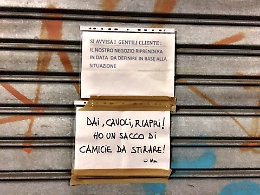 SI AVVISA I GENTILI CLIENTI:
IL NOSTRO NEGOZIO RIPRENDERÀ
IN DATA DA DEFINIRE IN BASE ALLA
SITUAZIONE
DAI, CAVOLI, RIAPRI!
HO UN SACCO DI
CAMICIE DA STIRARE!